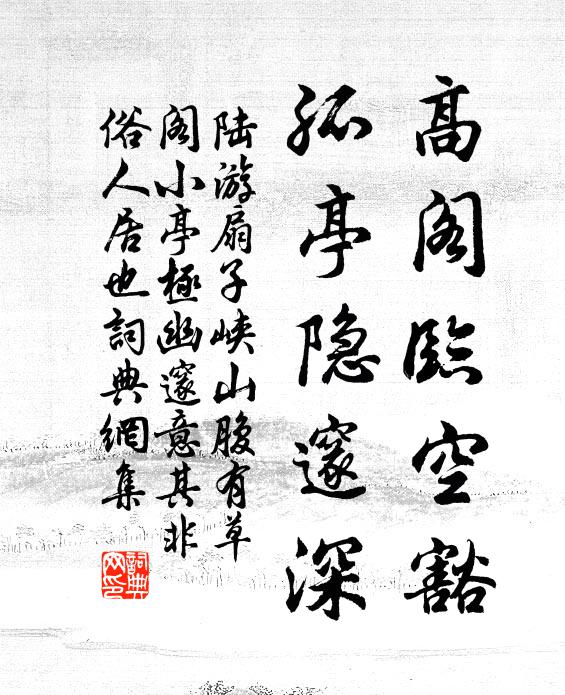 高阁臨空豁
孤亭隐邃深
陆游扇子峡山腹有草
阁小亭極幽邃意其非
俗人居也詞典網集
詞典网印